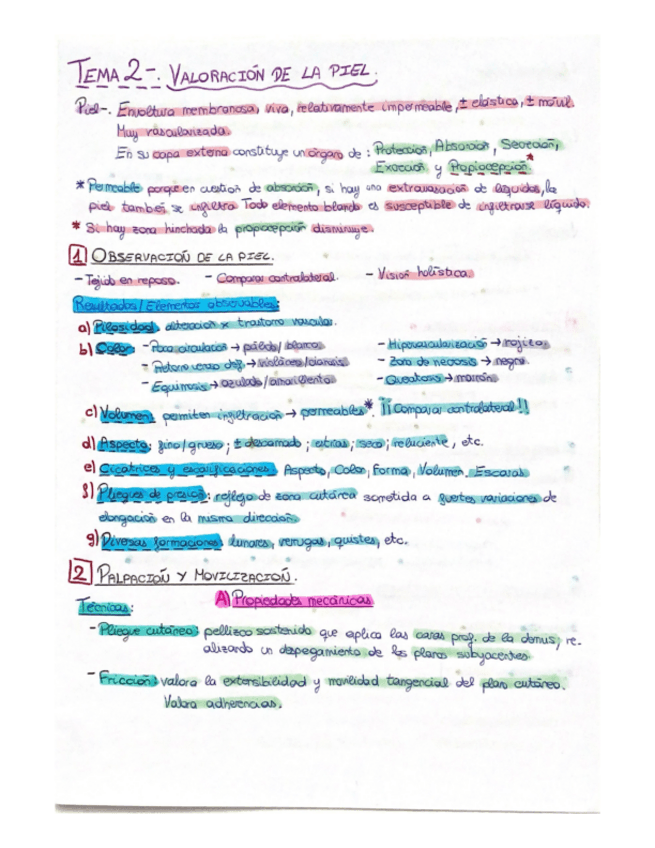 TEMA 2-. VALORACIÓN DE LA PIEL.
Piel-. Envoltura membranosa, viva, relativamente impermeable, ± elástica, ± móvil.
Muy vascularizada.
En su capa externa constituye un órgano de: Protección, Absorción, Secreción,
Excreción y Propiocepción.*
* Permeable porque en cuestión de absorción, si hay una extravasación de líquidos, la
piel también se infiltra. Todo elemento blando es susceptible de infiltrarse líquido.
* Si hay zona hinchada la propiocepción disminuye.
1 OBSERVACIÓN DE LA PIEL.
- Tejido en reposo. - Comparar contralateral. - Visión holística.
Resultados/Elementos observables:
a) Pilosidad: alteración x trastorno vascular.
b) Color: - Poca circulación → pálido/blanco - Hipervascularización → rojizo
- Retorno venoso → violáceo/cianosis - Zona de necrosis → negro.
- Equimosis → azulado/amarillento - Queratosis → marrón
c) Volumen: permiten infiltración → permeables* ¡¡Comparar contralateral!!
d) Aspecto: fino/grueso; ± descamado; estrías; seco; reluciente, etc.
e) Cicatrices y escarificaciones: Aspecto, Color, Forma, Volumen, Escaras
f) Pliegues de presión: reflejo de zona cutánea sometida a fuertes variaciones de
elongación en la misma dirección
g) Diversas formaciones: lunares, verrugas, quistes, etc.
2 PALPACIÓN Y MOVILIZACIÓN.
A) Propiedades mecánicas
Técnicas:
- Pliegue cutáneo: pellizco sostenido que aplica las caras prof. de la dermis, re-
alizando un despegamiento de los planos subyacentes.
- Fricción: valora la extensibilidad y movilidad tangencial del plano cutáneo.
Valora adherencias.